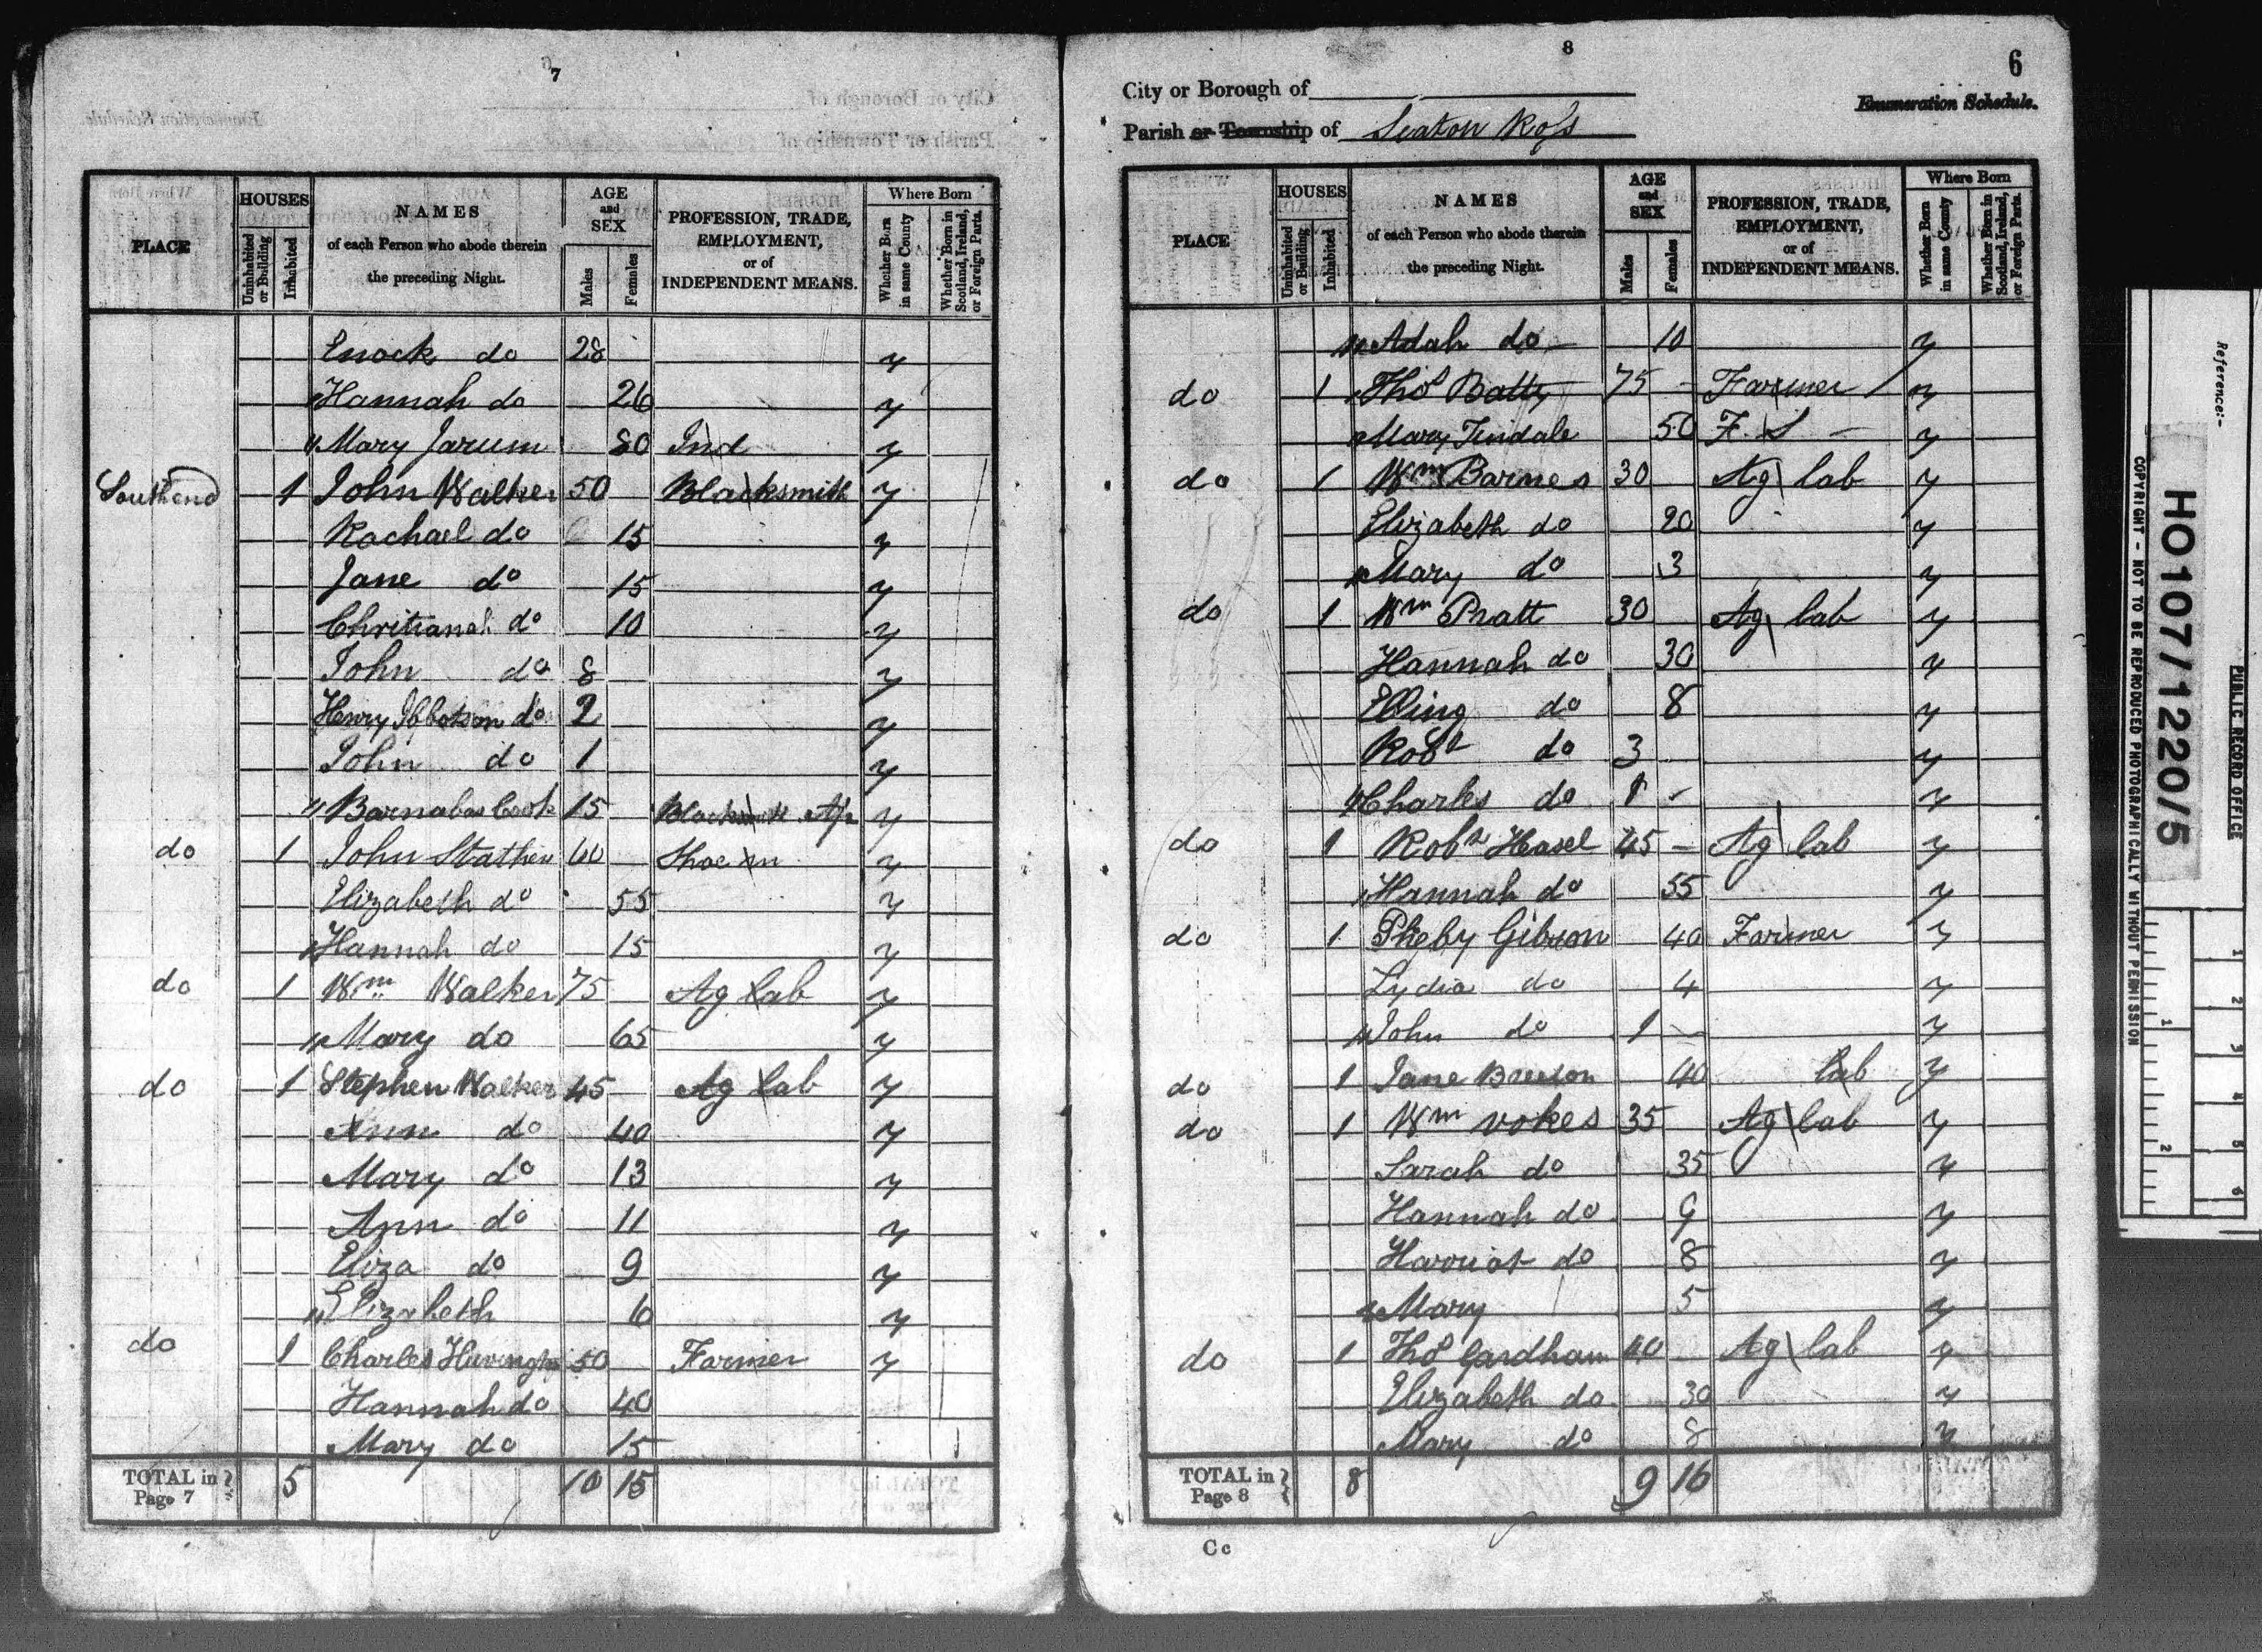 7
PLACE
HOUSES
Uninhabited or Building
Inhabited
NAMES
of each Person who abode therein
the preceding Night.
AGE
and
SEX
Males
Females
PROFESSION, TRADE,
EMPLOYMENT,
or of
INDEPENDENT MEANS.
Where Born
Whether Born in same County
Whether Born in Scotland, Ireland, or Foreign Parts.
Enock do 28 y
Hannah do 26 y
Mary Jarum 80 Ind y
Southend 1 John Walker 50 Blacksmith y
Rachael do 15 y
Jane do 15 y
Chritianah do 10 y
John do 8 y
Henry Ibbotson do 2 y
John do 1 y
Barnabas Cook 15 Blacksmith Ap y
do 1 John Stather 60 Shoe m y
Elizabeth do 55 y
Hannah do 15 y
do 1 Wm Walker 75 Ag lab y
Mary do 65 y
do 1 Stephen Walker 45 Ag lab y
Ann do 40 y
Mary do 13 y
Ann do 11 y
Eliza do 9 y
Elizabeth 6 y
do 1 Charles 50 Farmer y
Hannah do 40
Mary do 15
TOTAL in Page 7 5 10 15
8
6
City or Borough of
Enumeration Schedule.
Parish or Township of Seaton Ros
PLACE
HOUSES
Uninhabited or Building
Inhabited
NAMES
of each Person who abode therein
the preceding Night.
AGE
and
SEX
Males
Females
PROFESSION, TRADE,
EMPLOYMENT,
or of
INDEPENDENT MEANS.
Where Born
Whether Born in same County
Whether Born in Scotland, Ireland, or Foreign Parts.
Adah do 10 y
do 1 Thos Batty 75 Farmer y
Mary Tindale 50 F. S y
do 1 Wm Barnes 30 Ag lab y
Elizabeth do 20 y
Mary do 3 y
do 1 Wm Pratt 30 Ag lab y
Hannah do 30 y
do 8 y
Robt do 3 y
Charles do 1 y
do 1 Robt Hasel 45 Ag lab y
Hannah do 55 y
do 1 Pheby Gibson 40 Farmer y
Lydia do 4 y
John do 1 y
do 1 Jane 40 lab y
do 1 Wm vokes 35 Ag lab y
Sarah do 35 y
Hannah do 9 y
Harriot do 8 y
Mary 5 y
do 1 Thos Gardham 40 Ag lab y
Elizabeth do 30 y
Mary do 8 y
TOTAL in Page 8 8 9 16
C c
Reference:-
HO107/1220/5
PUBLIC RECORD OFFICE
COPYRIGHT - NOT TO BE REPRODUCED PHOTOGRAPHICALLY WITHOUT PERMISSION
1 2 3 4 5 6
1 2